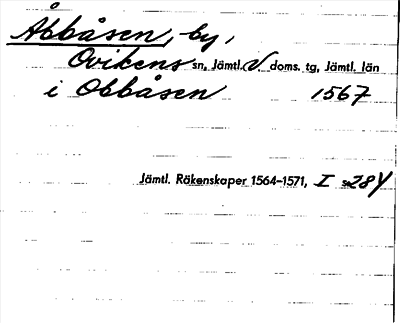 Åbbåsen, by,
Ovikens sn, Jämtl. V. doms. tg, Jämtl. län
i Obbåsen 1567
Jämtl. Räkenskaper 1564-1571, I s. 284